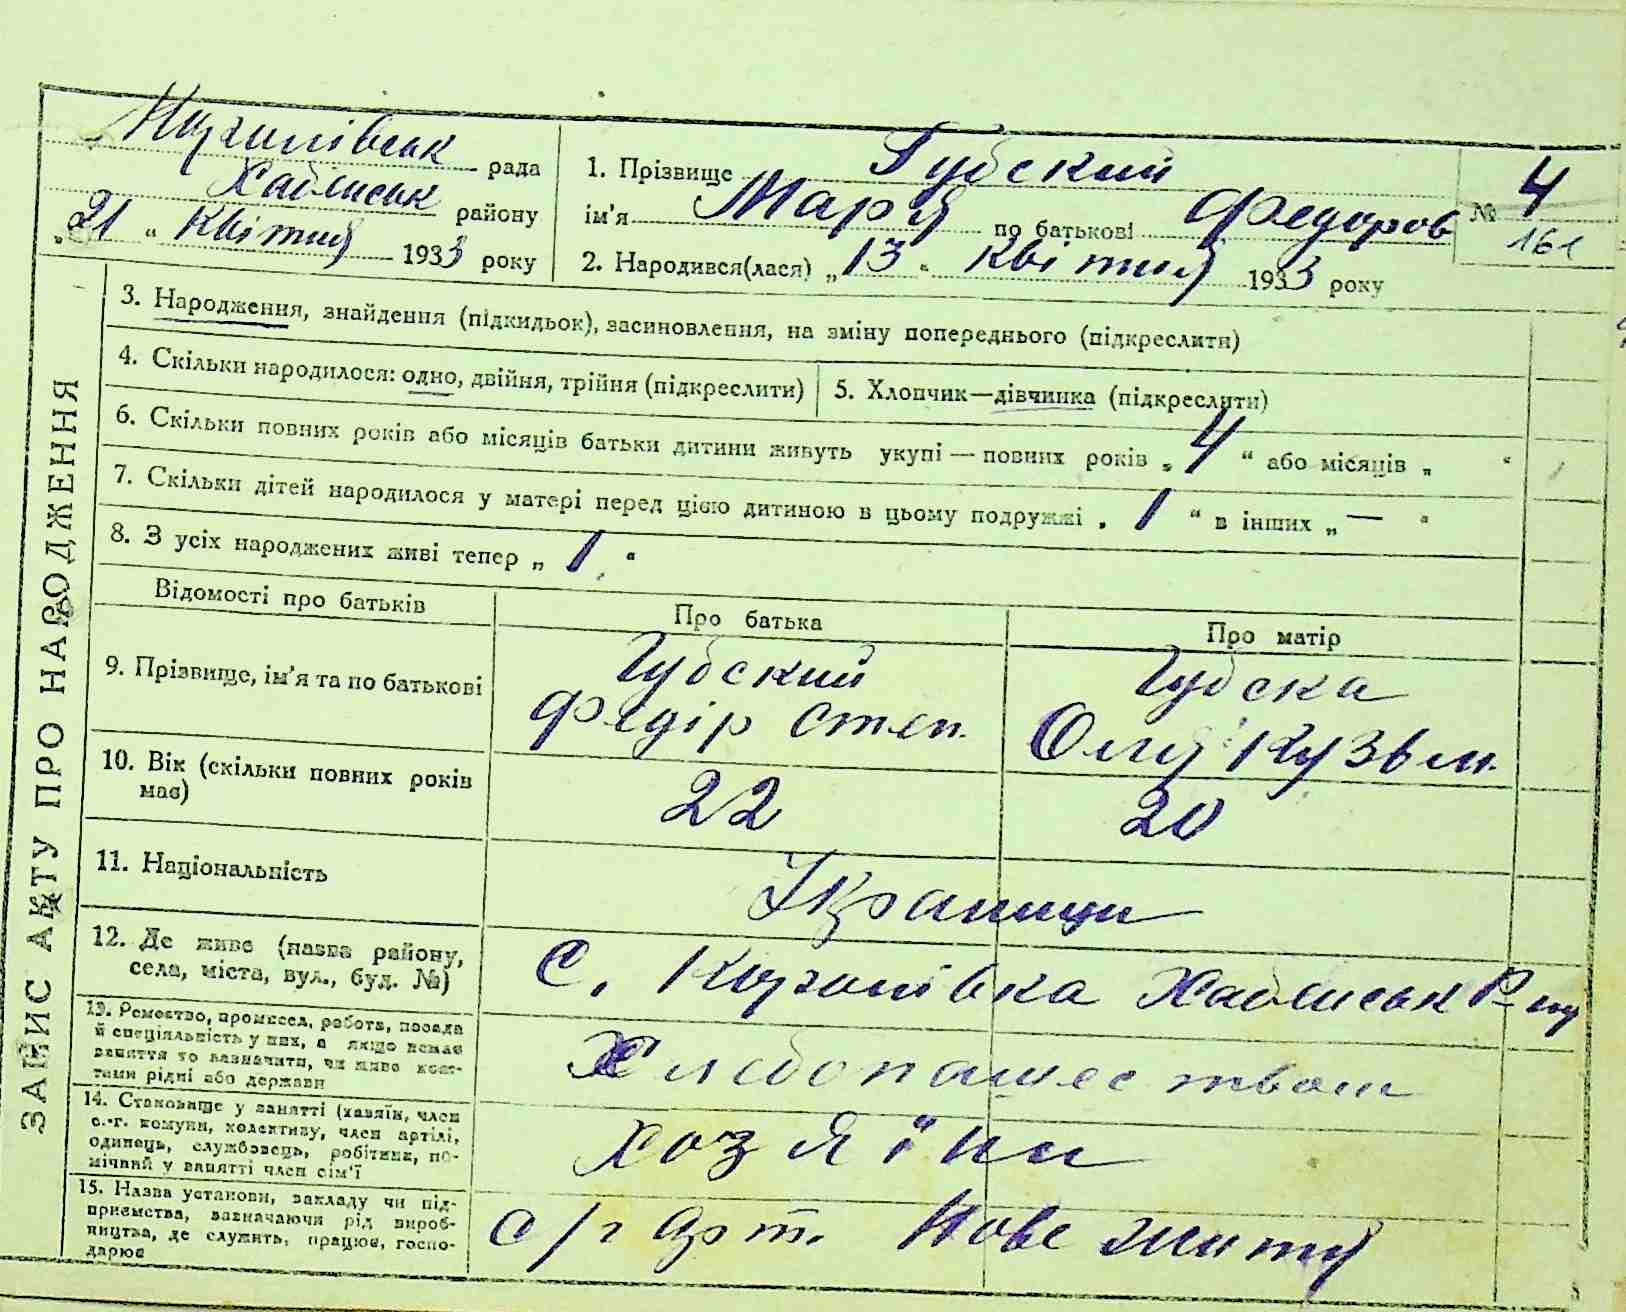 рада
Хабенськ району
„21“ Квітня 1933 року
1. Прізвище Губский
ім'я Марія по батькові Федоров
2. Народився(лася) „13“ Квітня 1933 року
№ 4
161
ЗАПИС АКТУ ПРО НАРОДЖЕННЯ
3. Народження, знайдення (підкидьок), засиновлення, на зміну попереднього (підкреслити)
4. Скільки народилося: одно, двійня, трійня (підкреслити)
5. Хлопчик—дівчинка (підкреслити)
6. Скільки повних років або місяців батьки дитини живуть укупі — повних років „4“ або місяців „ “
7. Скільки дітей народилося у матері перед цією дитиною в цьому подружжі „1“ в інших „—“
8. З усіх народжених живі тепер „1“
Відомості про батьків
Про батька
Про матір
9. Прізвище, ім'я та по батькові
Губский
Федір Степ.
Губска
Оля Кузьм.
10. Вік (скільки повних років
має)
22
20
11. Національність
Украинци
12. Де живе (назва району,
села, міста, вул., буд. №)
С. р-ну
13. Ремество, промисел, робота, посада
й спеціяльність у них, а якщо немає
заняття то зазначити, чи живе кош-
тами рідні або держави
Хлебопашеством
14. Становище у занятті (хазяїн, член
с.-г. комуни, колективу, член артілі,
одинець, службовець, робітник, по-
мічний у занятті член сім'ї
хозяїни
15. Назва установи, закладу чи під-
приємства, зазначаючи рід вироб-
ництва, де служить, працює, госпо-
дарює
с/г арт. Нове життя